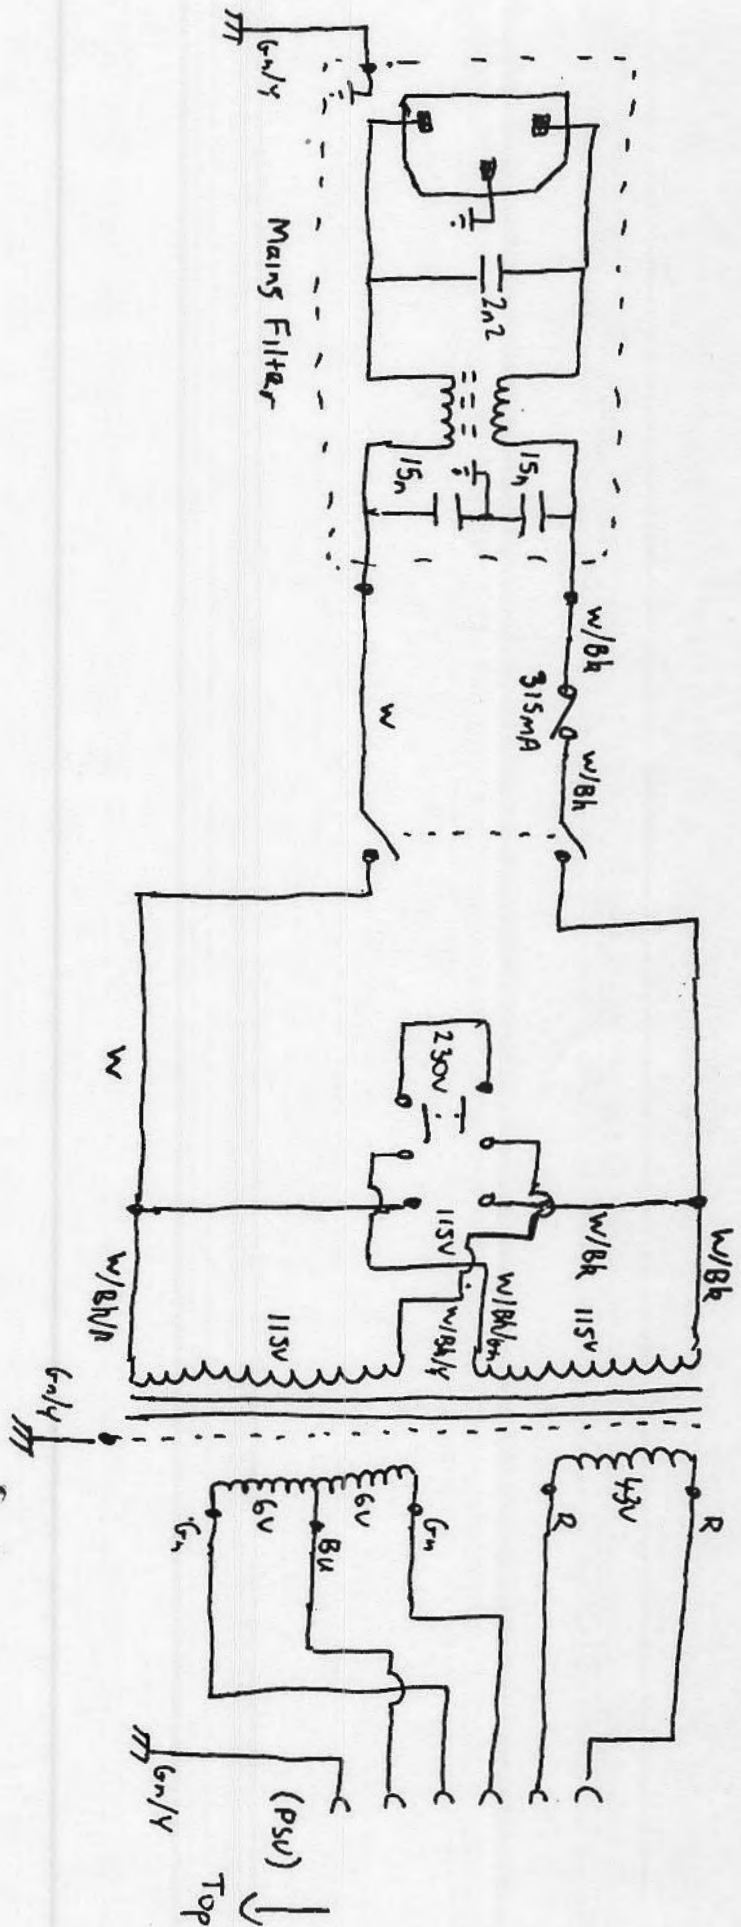 Gn/Y
Mains Filter
2n2
15n
15n
W/Bk
315mA
W/Bk
W
W
230V
115V
W/Bk
W/Bk
W/Bk/R
W/Bk/Y
W/Bk/Gn
115V
115V
Gn/Y
43V
R
R
6V
6V
Gn
Bu
Gn
Gn/Y
(PSU)
Top